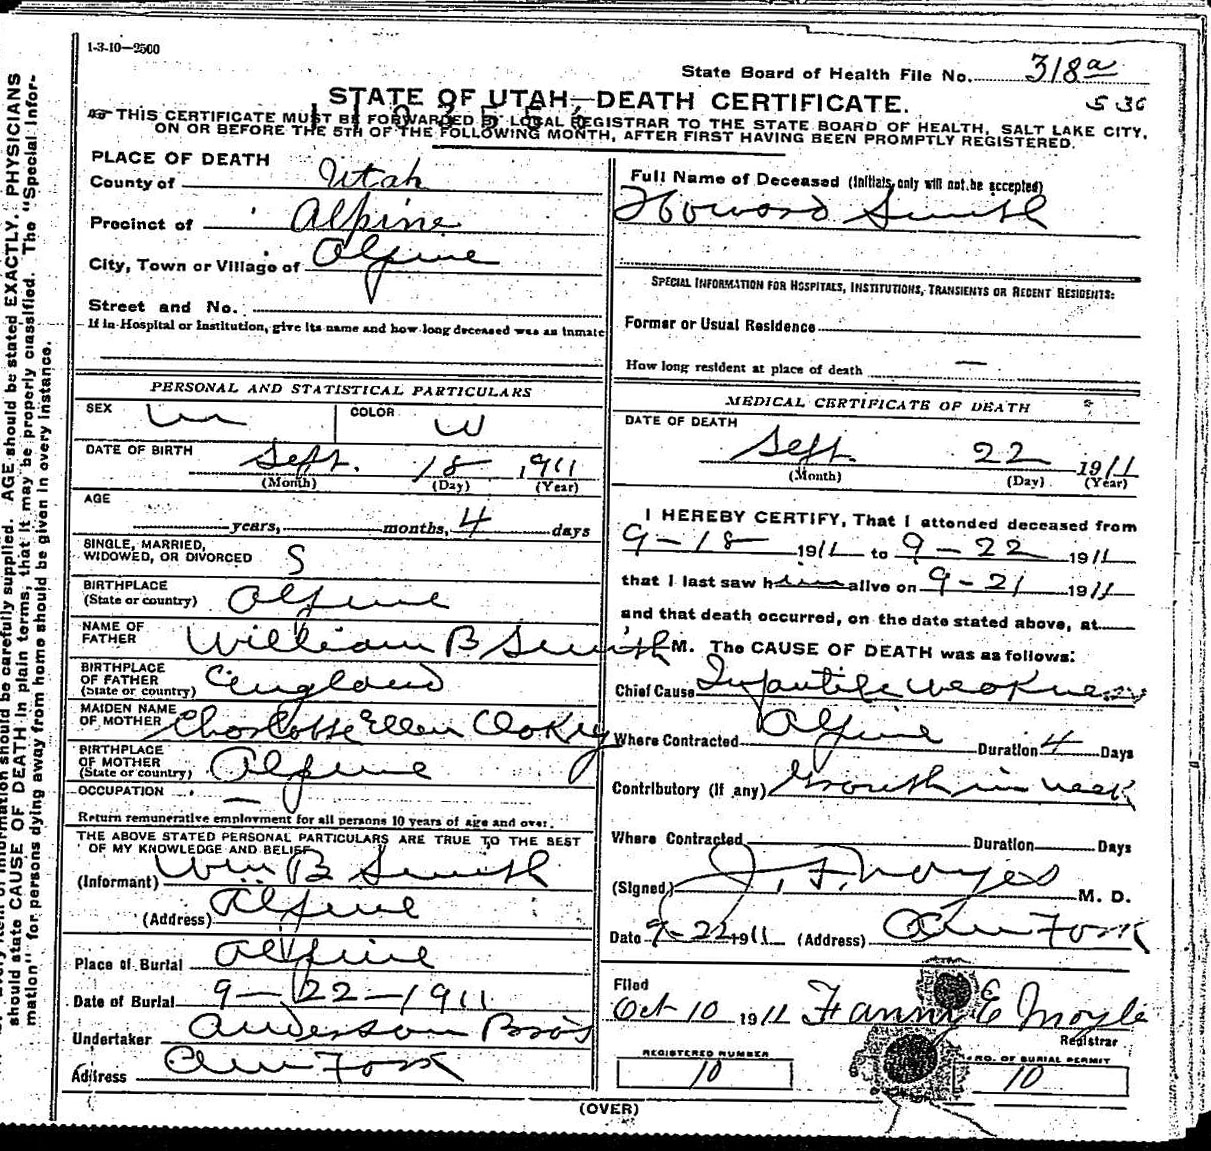 1-3-10—2500
State Board of Health File No. 318a
STATE OF UTAH—DEATH CERTIFICATE.
536
THIS CERTIFICATE MUST BE FORWARDED BY LOCAL REGISTRAR TO THE STATE BOARD OF HEALTH, SALT LAKE CITY,
ON OR BEFORE THE 5TH OF THE FOLLOWING MONTH, AFTER FIRST HAVING BEEN PROMPTLY REGISTERED.
PLACE OF DEATH
County of Utah
Precinct of Alpine
City, Town or Village of Alpine
Street and No.
If in Hospital or Institution, give its name and how long deceased was an inmate
PERSONAL AND STATISTICAL PARTICULARS
SEX m COLOR W
DATE OF BIRTH Sept. 18 1911
(Month) (Day) (Year)
AGE
years, months, 4 days
SINGLE, MARRIED,
WIDOWED, OR DIVORCED S
BIRTHPLACE
(State or country) Alpine
NAME OF
FATHER William B Smith
BIRTHPLACE
OF FATHER
(State or country) England
MAIDEN NAME
OF MOTHER Charlotte Ellen Clokey
BIRTHPLACE
OF MOTHER
(State or country) Alpine
OCCUPATION —
Return remunerative employment for all persons 10 years of age and over.
THE ABOVE STATED PERSONAL PARTICULARS ARE TRUE TO THE BEST
OF MY KNOWLEDGE AND BELIEF
(Informant) Wm B Smith
(Address) Alpine
Place of Burial Alpine
Date of Burial 9-22-1911
Undertaker Anderson Bros
Address Am Fork
Full Name of Deceased (Initials only will not be accepted)
Howard Smith
SPECIAL INFORMATION FOR HOSPITALS, INSTITUTIONS, TRANSIENTS OR RECENT RESIDENTS:
Former or Usual Residence
How long resident at place of death —
MEDICAL CERTIFICATE OF DEATH
DATE OF DEATH
Sept. 22 1911
(Month) (Day) (Year)
I HEREBY CERTIFY, That I attended deceased from
9-18 1911 to 9-22 1911
that I last saw him alive on 9-21 1911
and that death occurred, on the date stated above, at
M. The CAUSE OF DEATH was as follows:
Chief Cause Infantile weakness
Where Contracted Alpine Duration 4 Days
Contributory (If any) Growth in neck
Where Contracted Duration Days
(Signed) J. F. Noyes M. D.
Date 9-22 1911 (Address) Am Fork
Filed
Oct 10 1911 Fannie E Moyle
Registrar
REGISTERED NUMBER
10
NO. OF BURIAL PERMIT
10
(OVER)
information should be carefully supplied. AGE should be stated EXACTLY. PHYSICIANS
should state CAUSE OF DEATH in plain terms, that it may be properly classified. The "Special Infor-
mation" for persons dying away from home should be given in every instance.